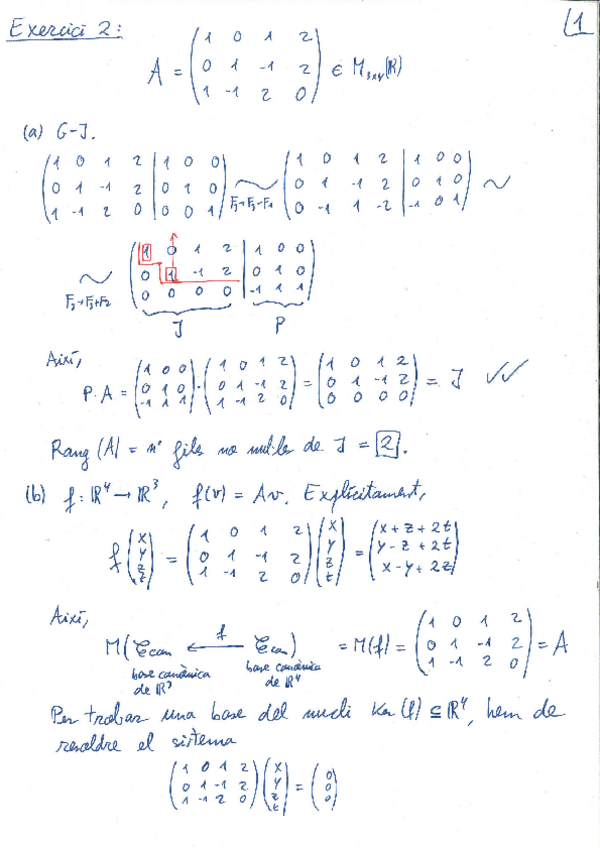 Exercici 2:
1
A = ( 1 0 1 2 / 0 1 -1 2 / 1 -1 2 0 ) ∈ M₃ₓ₄(ℝ)
(a) G-J.
( 1 0 1 2 | 1 0 0 / 0 1 -1 2 | 0 1 0 / 1 -1 2 0 | 0 0 1 ) ~ F₃→F₃-F₁ ( 1 0 1 2 | 1 0 0 / 0 1 -1 2 | 0 1 0 / 0 -1 1 -2 | -1 0 1 ) ~
~ F₃→F₃+F₂ ( 1 0 1 2 | 1 0 0 / 0 1 -1 2 | 0 1 0 / 0 0 0 0 | -1 1 1 )
J P
Així,
P·A = ( 1 0 0 / 0 1 0 / -1 1 1 ) · ( 1 0 1 2 / 0 1 -1 2 / 1 -1 2 0 ) = ( 1 0 1 2 / 0 1 -1 2 / 0 0 0 0 ) = J ✓✓
Rang (A) = nº files no nul·les de J = 2.
(b) f: ℝ⁴ → ℝ³, f(v) = Av. Explícitament,
f ( x / y / z / t ) = ( 1 0 1 2 / 0 1 -1 2 / 1 -1 2 0 ) ( x / y / z / t ) = ( x + z + 2t / y - z + 2t / x - y + 2z )
Així,
M( 𝒞can ←f 𝒞can ) = M(f) = ( 1 0 1 2 / 0 1 -1 2 / 1 -1 2 0 ) = A
base canònica de ℝ³ base canònica de ℝ⁴
Per trobar una base del nucli Ker (f) ⊆ ℝ⁴, hem de
resoldre el sistema
( 1 0 1 2 / 0 1 -1 2 / 1 -1 2 0 ) ( x / y / z / t ) = ( 0 / 0 / 0 )